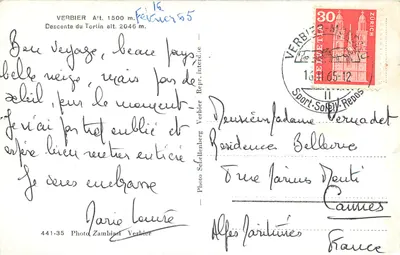 VERBIER Alt. 1500 m.
Descente du Tortin alt. 2046 m.
16
février 65
Bon voyage, beau pays,
belle neige, mais pas de
soleil, pour le moment.
Je n'ai pas trop oublié et
espère bien rentrer entière
Je vous embrasse
Marie Louise
441-35 Photo Zambinet Verbier
Photo Schellenberg Verbier Repr. interdite
30
HELVETIA
ZÜRICH
VERBIER
65-12
II
Sport-Soleil-Repos
Monsieur Madame
Résidence Bellerive
rue Marius Monti
Cannes
Alpes Maritimes
France